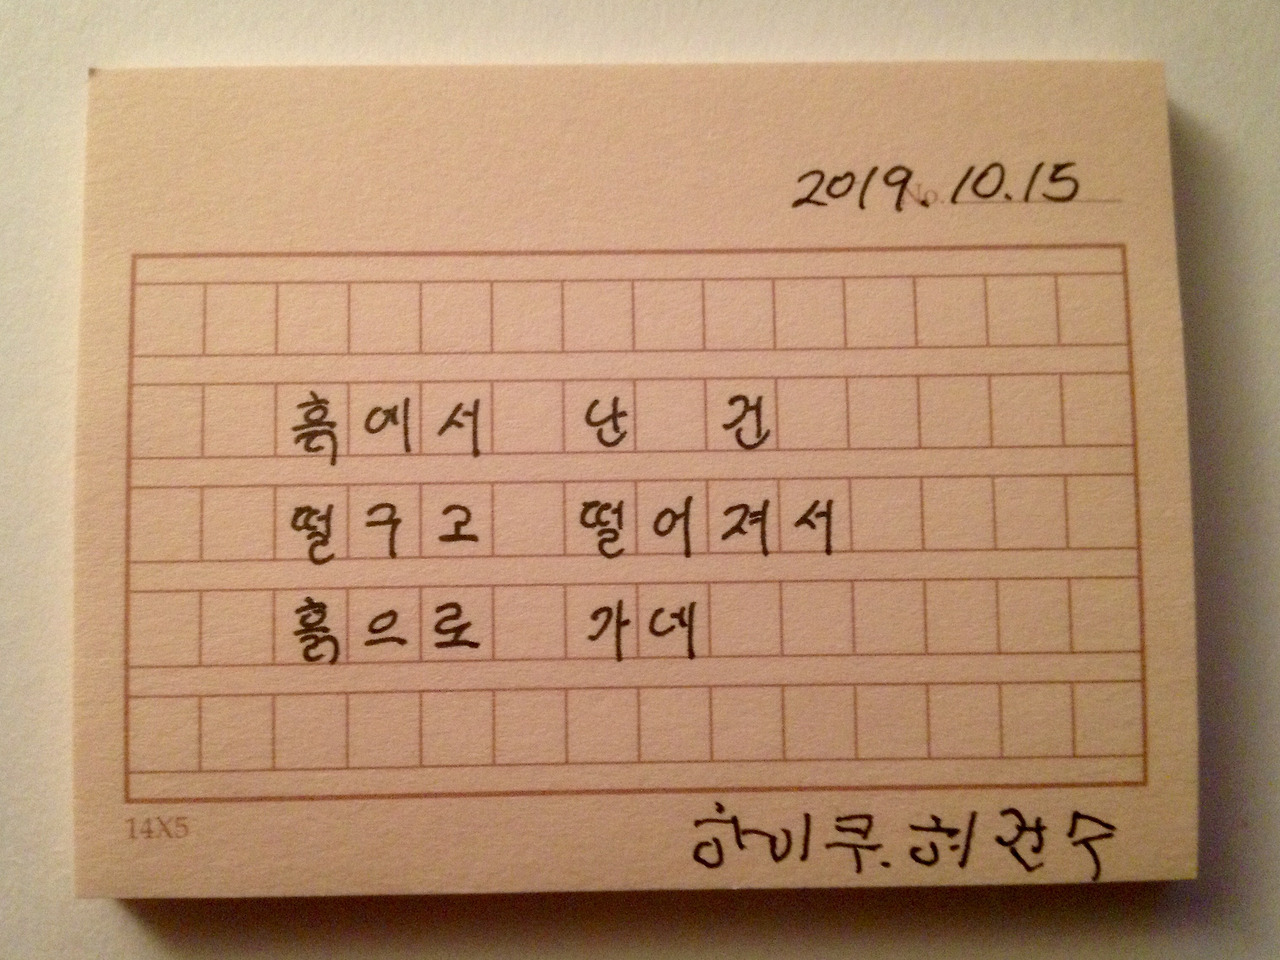 2019. 10. 15
No.
흙에서 난 건
떨구고 떨어져서
흙으로 가네
14X5
하이쿠. 허건수